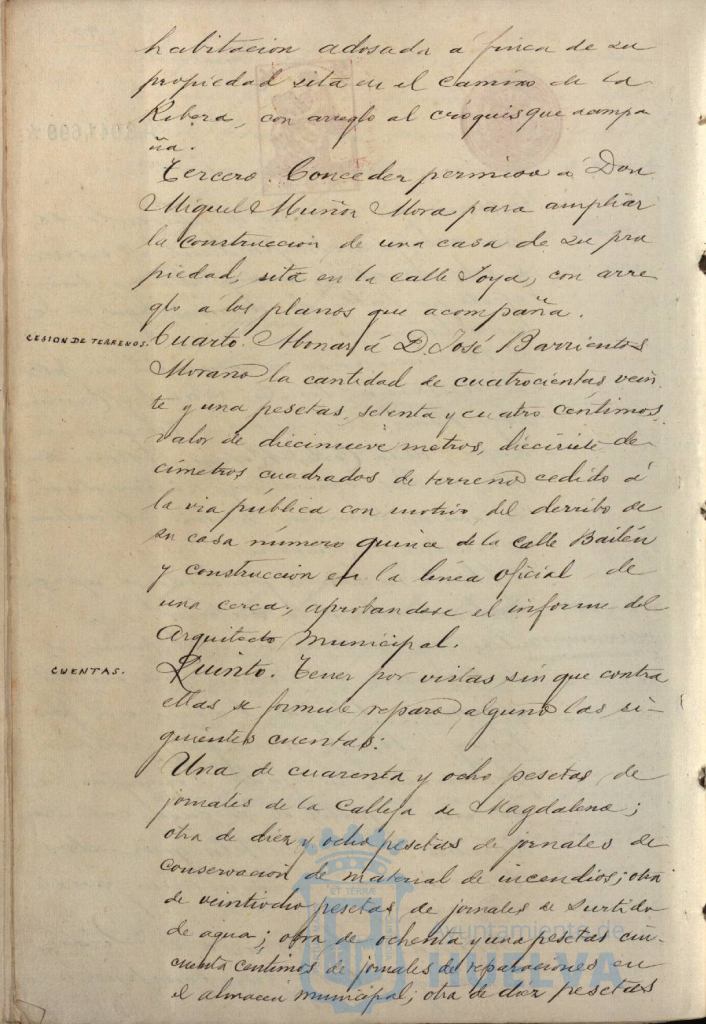 habitacion adosada á finca de su
propiedad sita en el Camino de la
Ribera, con arreglo al croquis que acompa
ña.
Tercero. Conceder permiso á Don
Miguel Muñoz Mora para ampliar
la construccion de una casa de su pro
piedad, sita en la calle Joya, con arre
glo á los planos que acompaña.
CESION DE TERRENOS.
Cuarto. Abonar á D. José Barrientos
Morano la cantidad de cuatrocientas vein
te y una pesetas, setenta y cuatro centimos,
valor de diecinueve metros, diecisiete de
címetros cuadrados de terreno cedido á
la via pública con motivo del derribo de
su casa número quince de la calle Bailén
y construccion en la línea oficial de
una cerca, aprobandose el informe del
Arquitecto Municipal.
CUENTAS.
Quinto. Tener por vistas sin que contra
ellas se formule reparo alguno las si-
guientes cuentas:
Una de cuarenta y ocho pesetas de
jornales de la Calleja de Magdalena;
otra de diez y ocho pesetas de jornales de
conservacion de material de incendios; otra
de veintiocho pesetas de jornales de surtido
de agua; otra de ochenta y una pesetas cin-
cuenta centimos de jornales de reparaciones en
el almacen municipal; otra de diez pesetas
ET TERRÆ
Ayuntamiento de
HUELVA